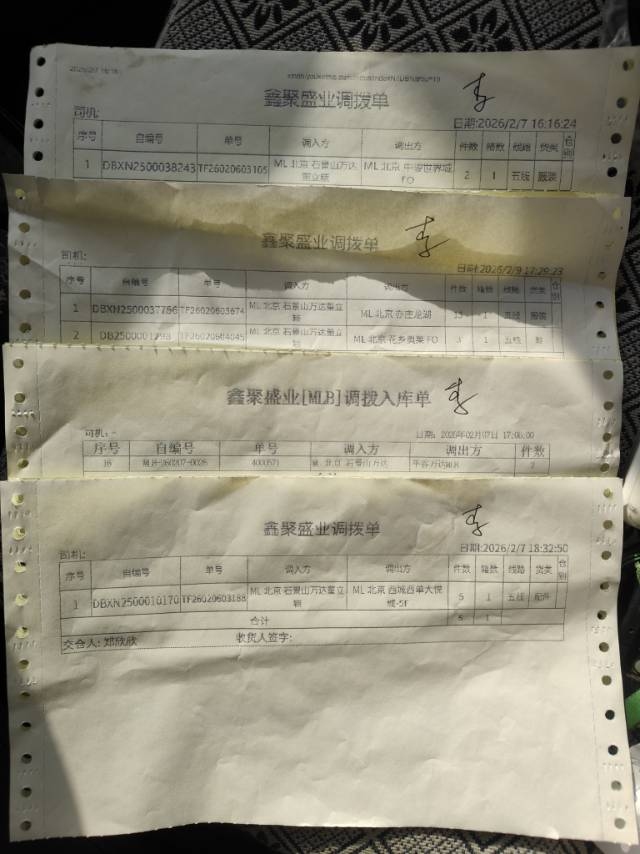 鑫聚盛业调拨单
司机:
日期:2026/2/7 16:16:24
序号 自编号 单号 调入方 调出方 件数 箱数 线路 货类 仓别
1 DBXN2500038243 TF26020603105 ML 北京 石景山万达 ML 北京 中骏世界城FO 2 1 五线 服装
鑫聚盛业调拨单
司机:
日期:2026/2/9 17:29:23
序号 自编号 单号 调入方 调出方 件数 箱数 线路 货类 仓别
1 DBXN2500037756 TF26020603674 ML 北京 石景山万达董立颖 ML 北京 亦庄龙湖 13 1 五线 服装
2 TF26020604045 ML 北京 石景山万达董立颖 ML 北京 花乡奥莱 FO 3 1 五线
鑫聚盛业[MLB]调拨入库单
司机: -
日期: 2026年02月07日 17:06:00
序号 自编号 单号 调入方 调出方 件数
16 400571 北京 石景山万达 2
鑫聚盛业调拨单
司机:
日期:2026/2/7 18:32:50
序号 自编号 单号 调入方 调出方 件数 箱数 线路 货类 仓别
1 DBXN2500010170 TF26020603188 ML 北京 石景山万达董立颖 ML 北京 西城西单大悦城-5F 5 1 五线 配件
合计 5 1
交仓人: 郑欣欣 收货人签字: